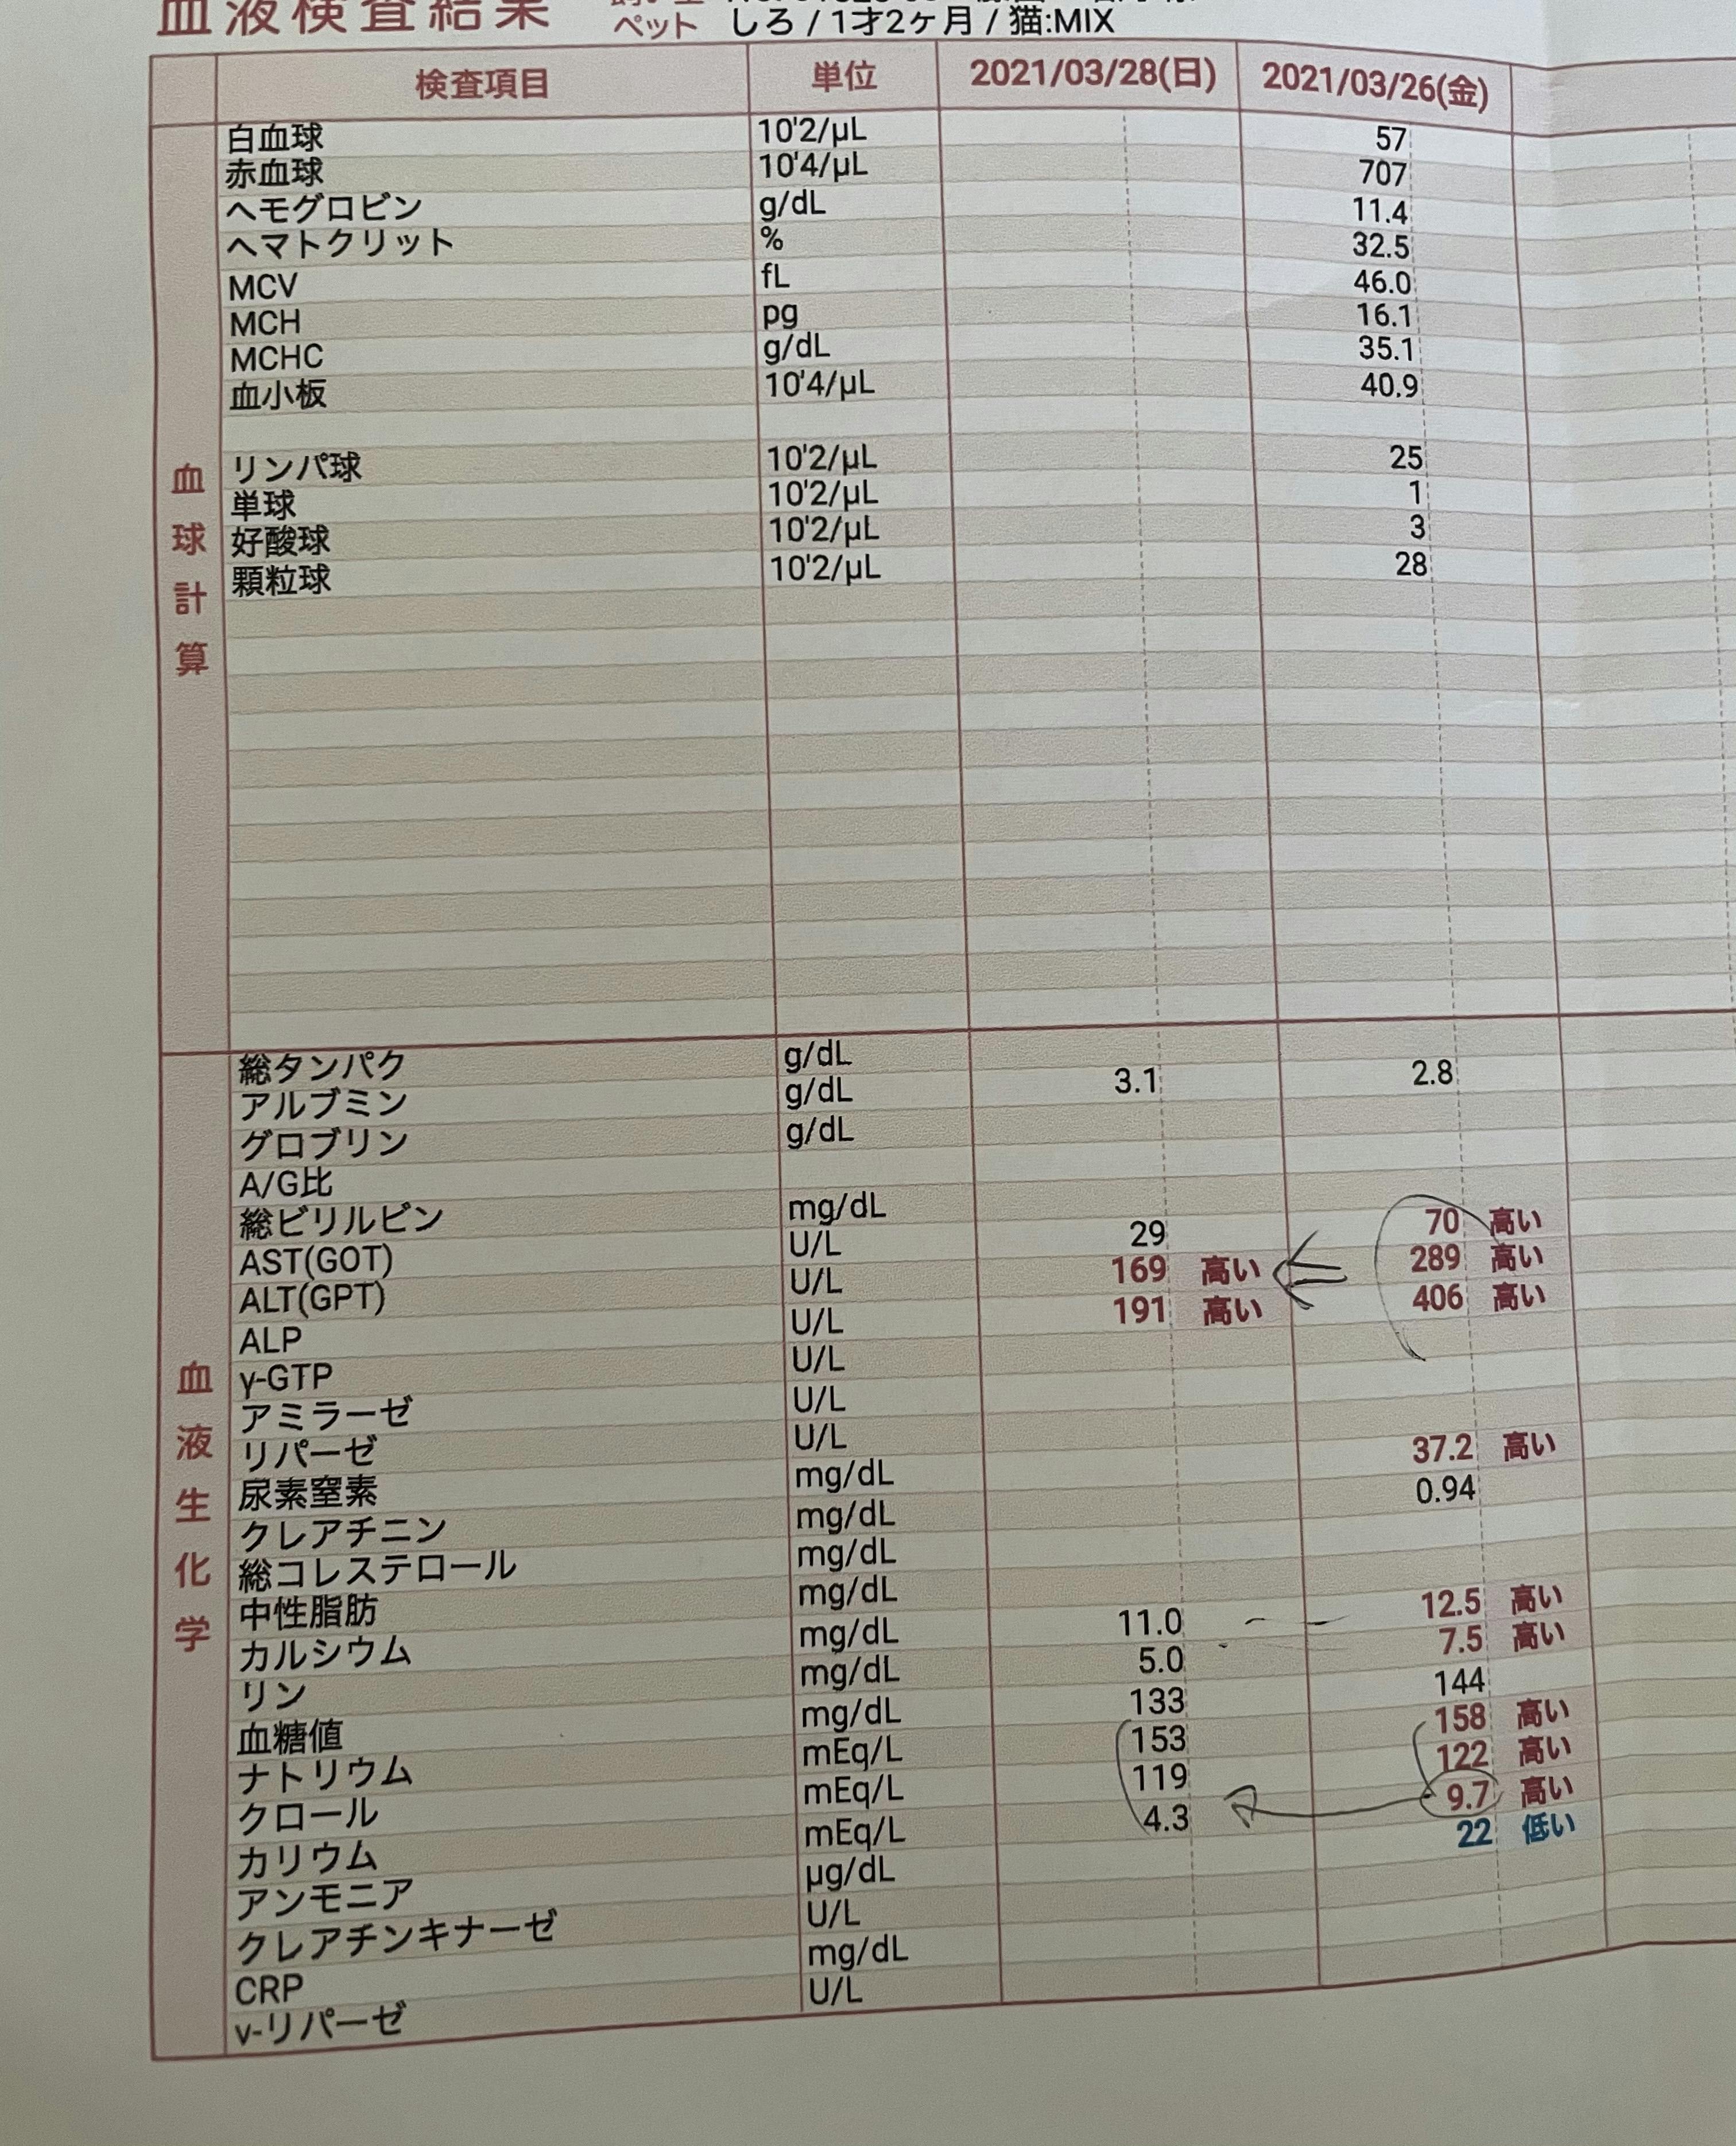 血液検査結果
ペット しろ / 1才2ヶ月 / 猫:MIX
検査項目 単位 2021/03/28(日) 2021/03/26(金)
血球計算
白血球 10'2/μL 57
赤血球 10'4/μL 707
ヘモグロビン g/dL 11.4
ヘマトクリット % 32.5
MCV fL 46.0
MCH pg 16.1
MCHC g/dL 35.1
血小板 10'4/μL 40.9
リンパ球 10'2/μL 25
単球 10'2/μL 1
好酸球 10'2/μL 3
顆粒球 10'2/μL 28
血液生化学
総タンパク g/dL
アルブミン g/dL 3.1 2.8
グロブリン g/dL
A/G比
総ビリルビン mg/dL
AST(GOT) U/L 29 70 高い
ALT(GPT) U/L 169 高い 289 高い
ALP U/L 191 高い 406 高い
γ-GTP U/L
アミラーゼ U/L
リパーゼ U/L
尿素窒素 mg/dL 37.2 高い
クレアチニン mg/dL 0.94
総コレステロール mg/dL
中性脂肪 mg/dL
カルシウム mg/dL 11.0 12.5 高い
リン mg/dL 5.0 7.5 高い
血糖値 mg/dL 133 144
ナトリウム mEq/L 153 158 高い
クロール mEq/L 119 122 高い
カリウム mEq/L 4.3 9.7 高い
アンモニア μg/dL 22 低い
クレアチンキナーゼ U/L
CRP mg/dL
v-リパーゼ U/L